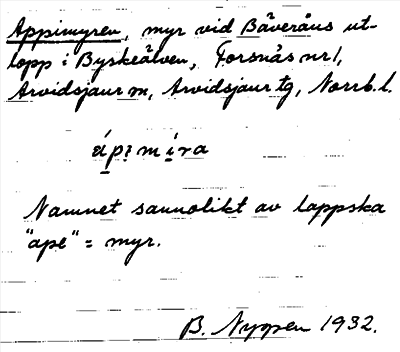 Appimyren, myr vid Bäveråns ut-
lopp i Byskeälven, Forsnäs nr 1,
Arvidsjaur sn, Arvidsjaur tg, Norrb. l.
ápimíra
Namnet sannolikt av lappska
"ape" = myr.
B. Nyppen 1932.